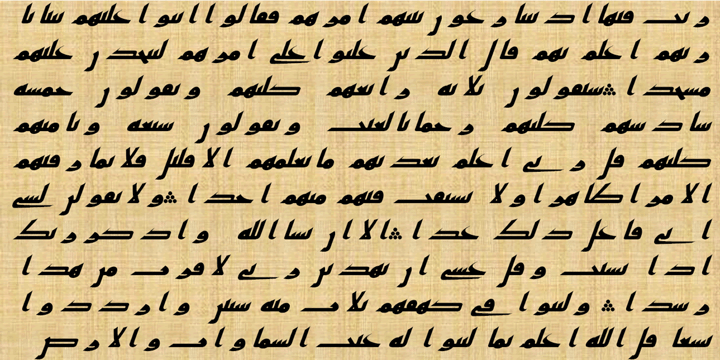 ريب فيها اذ يتنازعون بينهم امرهم فقالوا ابنوا عليهم بنيانا
ربهم اعلم بهم قال الذين غلبوا على امرهم لنتخذن عليهم
مسجدا ۝ سيقولون ثلاثة رابعهم كلبهم ويقولون خمسة
سادسهم كلبهم رجما بالغيب ويقولون سبعة وثامنهم
كلبهم قل ربي اعلم بعدتهم ما يعلمهم الا قليل فلا تمار فيهم
الا مرا ظاهرا ولا تستفت فيهم منهم احدا ۝ ولا تقولن لشي
اني فاعل ذلك غدا ۝ الا ان يشا الله واذكر ربك
اذا نسيت وقل عسى ان يهدين ربي لاقرب من هذا
رشدا ۝ ولبثوا في كهفهم ثلاث مئة سنين وازدادوا
تسعا قل الله اعلم بما لبثوا له غيب السماوات والارض